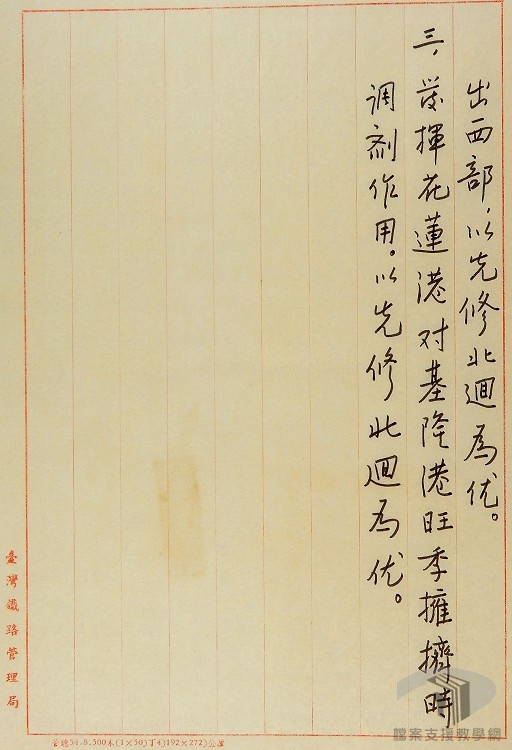 出西部，以先修北迴為优。
三、發揮花蓮港对基隆港旺季擁擠時
調劑作用。以先修北迴為优。
臺灣鐵路管理局
管總54.8.500本(1×50)丁4)192×272)公厘
檔案支援教學網